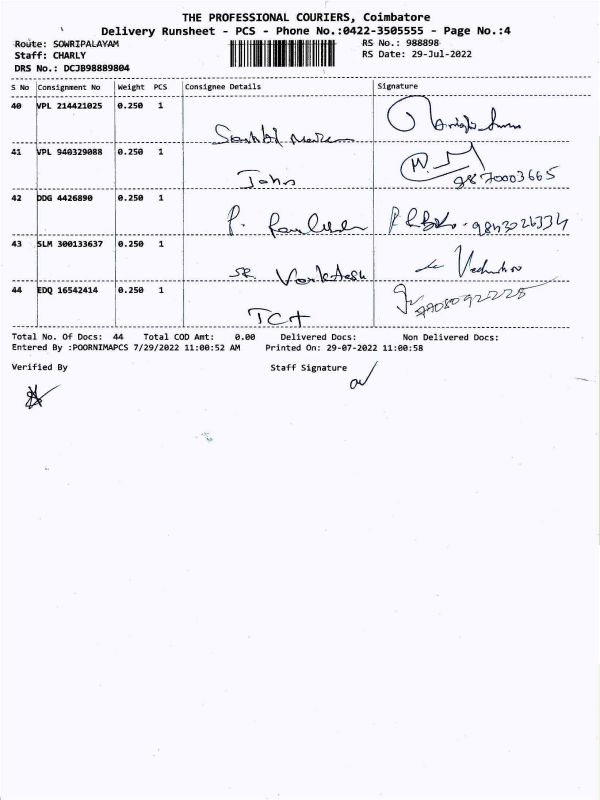 THE PROFESSIONAL COURIERS, Coimbatore
Delivery Runsheet - PCS - Phone No.:0422-3505555 - Page No.:4
Route: SOWRIPALAYAM RS No.: 988898
Staff: CHARLY RS Date: 29-Jul-2022
DRS No.: DCJB98889804
S No Consignment No Weight PCS Consignee Details Signature
40 VPL 214421025 0.250 1
41 VPL 940329088 0.250 1
John 9870003665
42 DDG 4426890 0.250 1
P. 9843026334
43 SLM 300133637 0.250 1
44 EDQ 16542414 0.250 1
Total No. Of Docs: 44 Total COD Amt: 0.00 Delivered Docs: Non Delivered Docs:
Entered By :POORNIMAPCS 7/29/2022 11:00:52 AM Printed On: 29-07-2022 11:00:58
Verified By Staff Signature